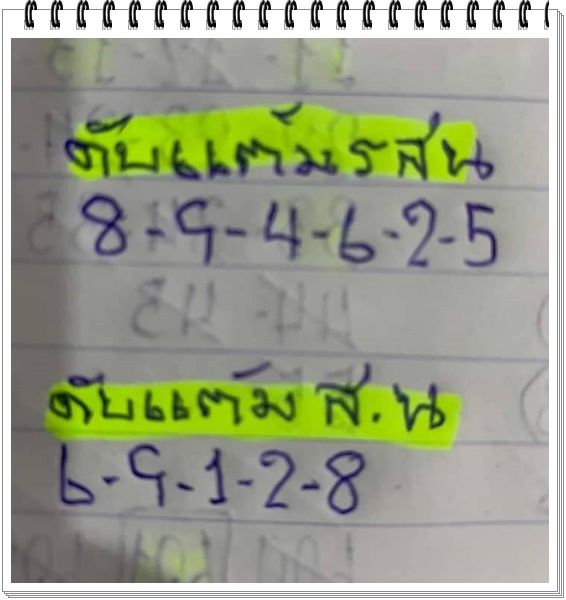 ดับแต้ม ร ส่น
8-9-4-6-2-5
ดับแต้ม ส.น
6-9-1-2-8